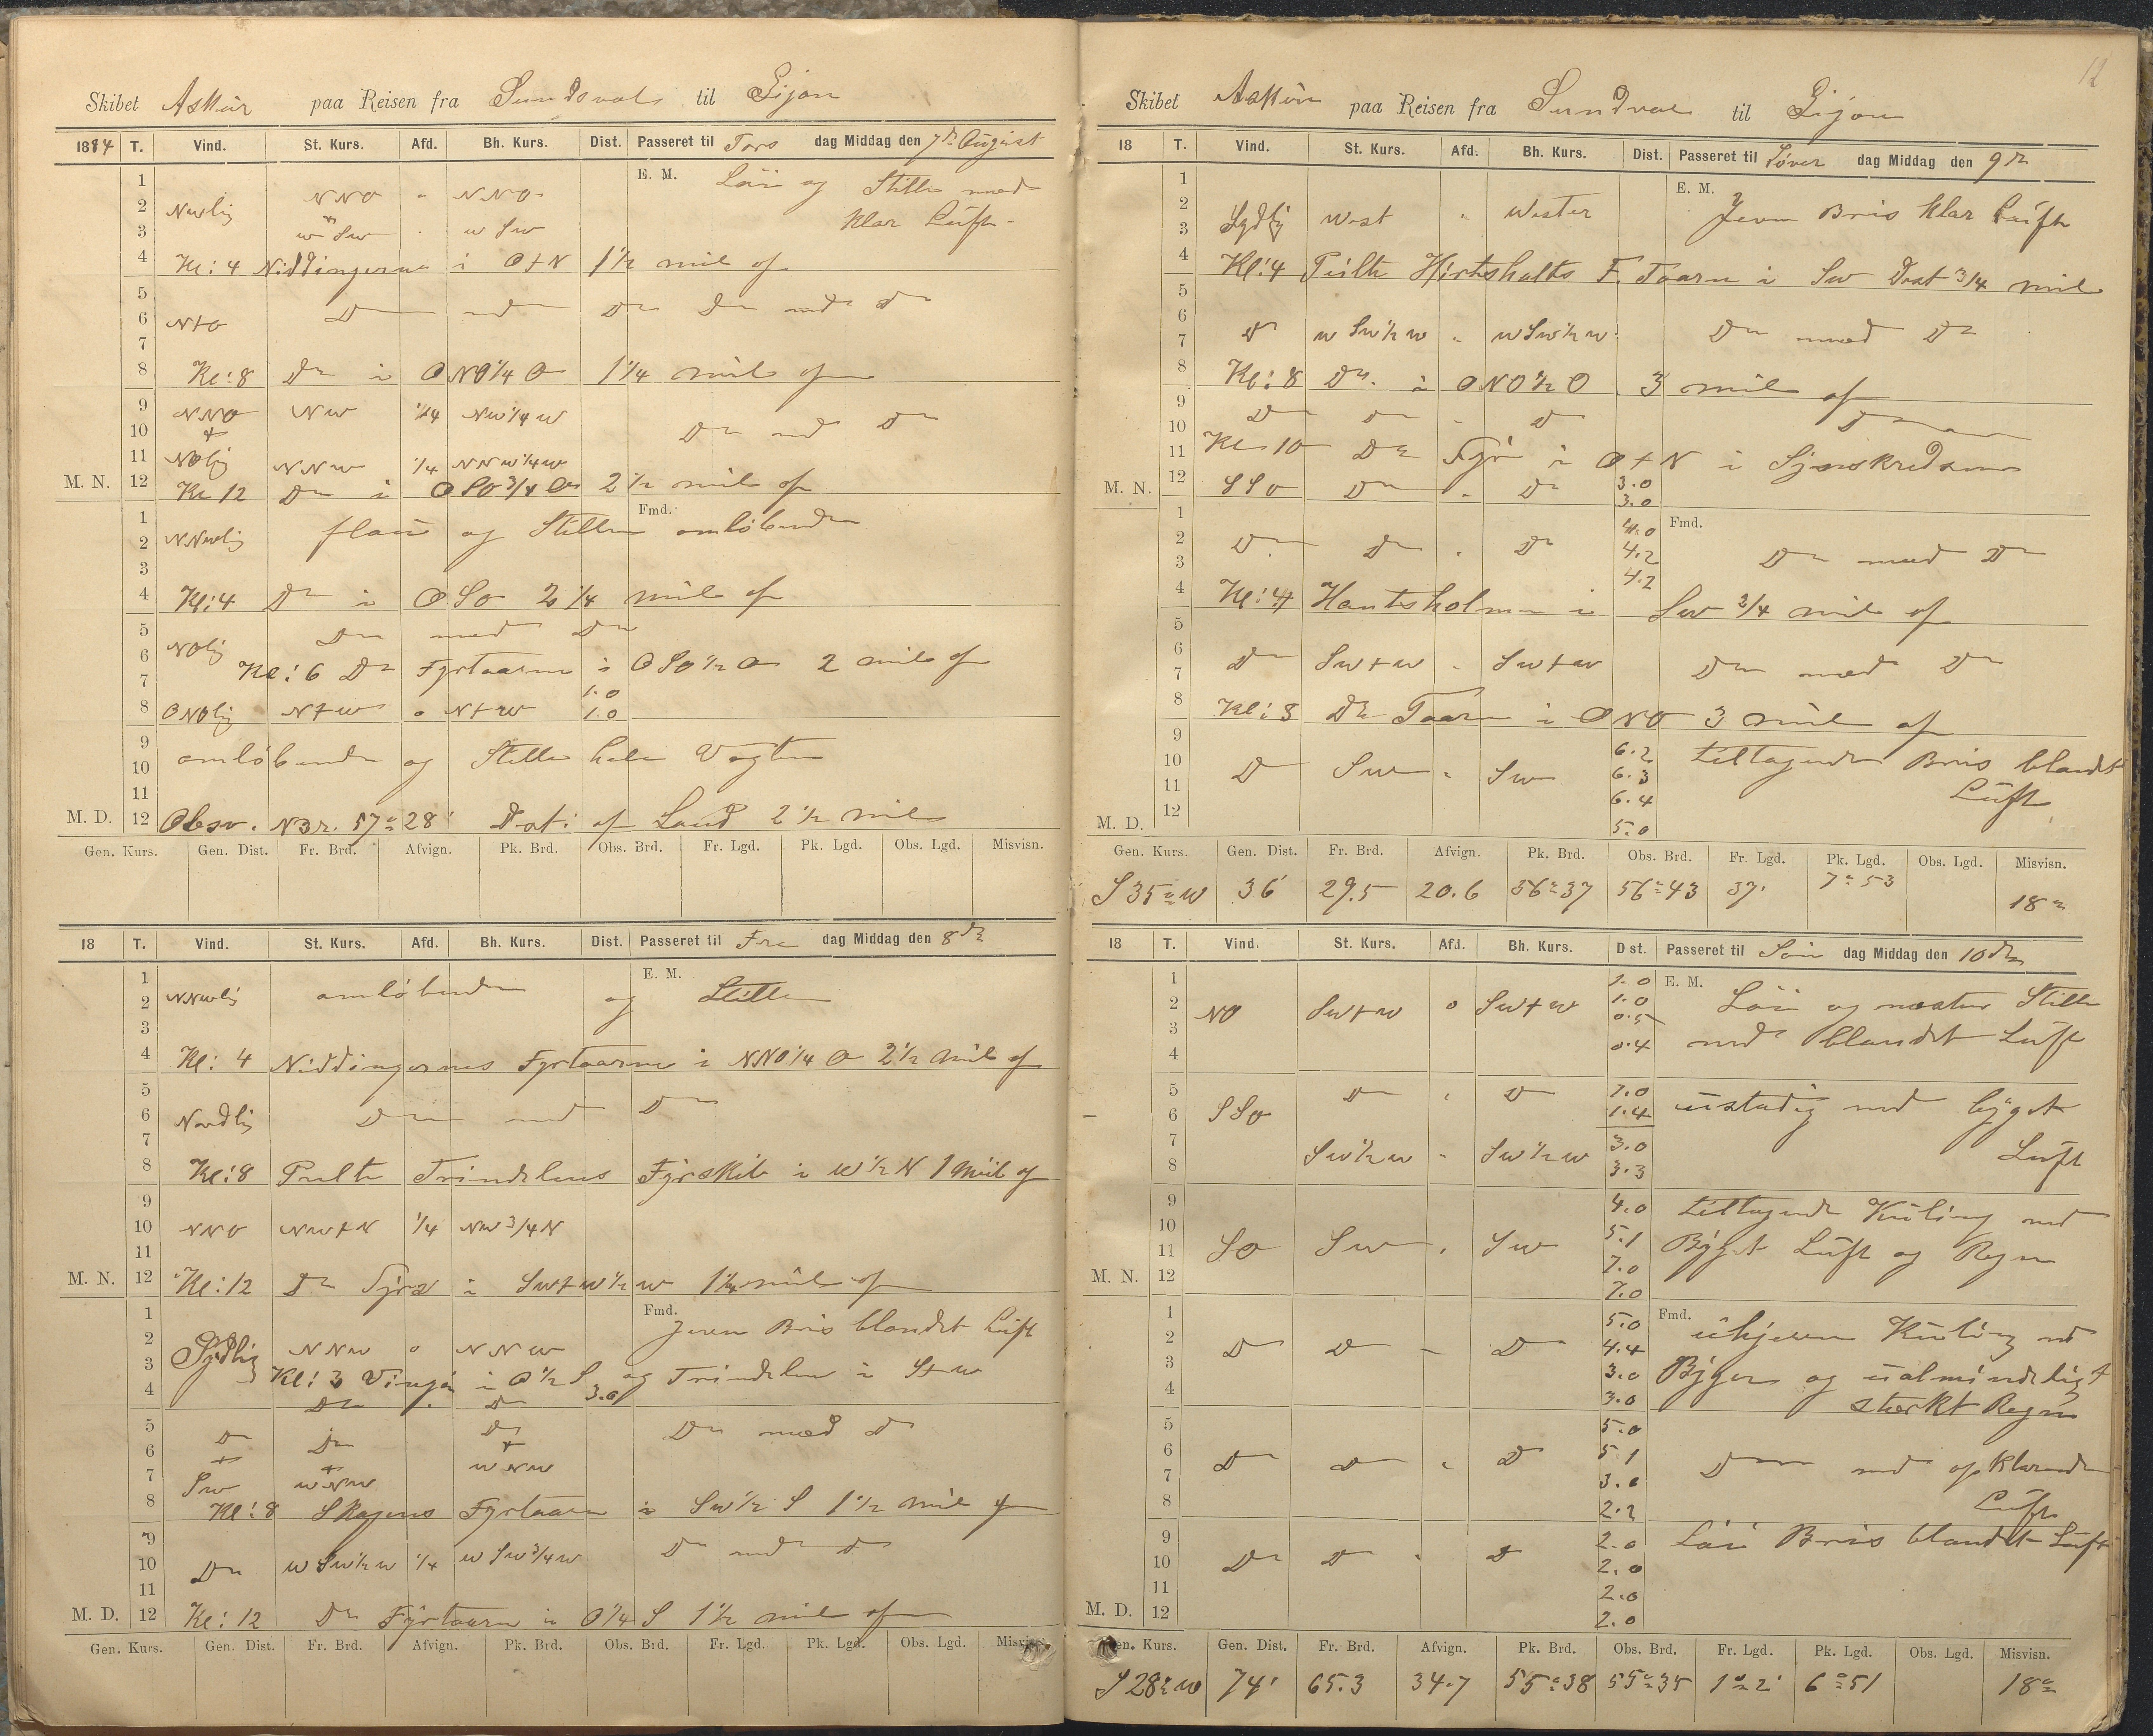 Skibet Askur paa Reisen fra Sundsval til Gijon
1884 T. Vind. St. Kurs. Afd. Bh. Kurs. Dist. Passeret til Tors dag Middag den 7de August
1 E. M. Löi og Stille med
2 Nwlig NNO " NNO
3 w Sw " w Sw klar Lüft
4 Kl: 4 Niddingerne i O+N 1 1/2 mil af
5
6 N+O Do med Do Do med Do
7
8 Kl: 8 Do i ONO 1/4 O 1 1/4 mil af
9 NNO Nw 1/4 Nw 1/4 w
10 + Do med Do
11 NOlig NNw 1/4 NNw 1/4 w
M. N. 12 Kl 12 Do i OSO 3/4 O 2 1/2 mil af
1 Fmd.
2 NNwlig flau og Stille omløbende
3
4 Kl: 4 Do i OSO 2 1/4 mil af
5 NOlig Do med Do
6 Kl: 6 Do Fyrtaarne i OSO 1/2 O 2 mil af
7 1.0
8 ONOlig N+w o N+w 1.0
9
10 omløbende og Stille hele Vagten
11
M. D. 12 Obsv. N Br. 57° 28' Dist: af Land 2 1/2 mil
Gen. Kurs. Gen. Dist. Fr. Brd. Afvign. Pk. Brd. Obs. Brd. Fr. Lgd. Pk. Lgd. Obs. Lgd. Misvisn.
18 T. Vind. St. Kurs. Afd. Bh. Kurs. Dist. Passeret til Fre dag Middag den 8de
1 E. M.
2 NNwlig omløbende og Stille
3
4 Kl: 4 Niddingernes Fyrtaarne i NNO 1/4 O 2 1/2 mil af
5
6 Nordlig Do med Do
7
8 Kl: 8 Peilte Trindelens Fyrskib i w 1/2 N 1 Mil af
9
10 NNO Nw+N 1/4 Nw 3/4 N
11
M. N. 12 Kl: 12 Do Fyrs i Sw+w 1/2 w 1 1/4 mil af
1 Fmd. Jevn Bris blandet Luft
2 Sydlig NNw o NNw
3 Kl: 3 Vinga i O 1/2 S og Trindelen i S+w
4 Do Do 3.0
5 Do Do Do Do med Do
6 + +
7 Sw wNw wNw
8 Kl: 8 Skagens Fyrtaarn i Sw 1/2 S 1 1/2 mil af
9
10 Do w Sw 1/2 w 1/4 w Sw 3/4 w Do med Do
11
M. D. 12 Kl: 12 Do Fyrtaarn i O 1/4 S 1 1/2 mil af
Gen. Kurs. Gen. Dist. Fr. Brd. Afvign. Pk. Brd. Obs. Brd. Fr. Lgd. Pk. Lgd. Obs. Lgd.
12
Skibet Askur paa Reisen fra Sundsval til Gijon
18 T. Vind. St. Kurs. Afd. Bh. Kurs. Dist. Passeret til Löver dag Middag den 9de
1 E. M.
2 Jevn Bris klar Luft
3 Sydlig West " Wester
4 Kl: 4 Peilte Hirtshalts F. Taarn i Sw Dist 3/4 mil
5
6
7 Do w Sw 1/2 w " w Sw 1/2 w Do med Do
8 Kl: 8 Do i ONO 1/2 O 3 mil af
9 Do Do " Do Do
10
11 Kl 10 Do Fyr i O+N i Synskredsen
M. N. 12 SSO Do " Do 3.0 3.0
1 4.0 Fmd.
2 Do Do " Do 4.2 Do med Do
3 4.2
4 Kl: 4 Hantsholmen i Sw 3/4 mil af
5
6
7 Do Sw+w " Sw+w Do med Do
8 Kl: 8 Do Taarn i ONO 3 mil af
9 6.2 tiltagende Bris blandet
10 Do Sw " Sw 6.3
11 6.4 Luft
M. D. 12 5.0
Gen. Kurs. Gen. Dist. Fr. Brd. Afvign. Pk. Brd. Obs. Brd. Fr. Lgd. Pk. Lgd. Obs. Lgd. Misvisn.
S 35° w 36' 29.5 20.6 56° 37 56° 43 37' 7° 53 18°
18 T. Vind. St. Kurs. Afd. Bh. Kurs. D st. Passeret til Søn dag Middag den 10de
1 1.0 E. M.
2 NO Sw+w o Sw+w 1.0 Löi og næsten Stille
3 0.5
4 0.4 med blandet Luft
5 Do " Do 1.0
6 SSO 1.4 ustadig med byget
7 3.0
8 Sw 1/2 w " Sw 1/2 w 3.3 Luft
9 4.0 tiltagende Kuling med
10 5.1
11 SO Sw " Sw 7.0 Byget Luft og Regn
M. N. 12 7.0
1 5.0 Fmd. Kuling med
2 Do Do " Do 4.4
3 3.0 Byger og ualmindeligt
4 3.0 stærkt Regn
5 5.0
6 Do Do " Do 5.1
7 3.0 Do med opklarende
8 2.2 Luft
9 2.0 Löi Bris blandet Luft
10 Do Do " Do 2.0
11 2.0
M. D. 12 2.0
Kurs. Gen. Dist. Fr. Brd. Afvign. Pk. Brd. Obs. Brd. Fr. Lgd. Pk. Lgd. Obs. Lgd. Misvisn.
S 28° w 74' 65.3 34.7 55° 38 55° 35 1° 2' 6° 51 18°